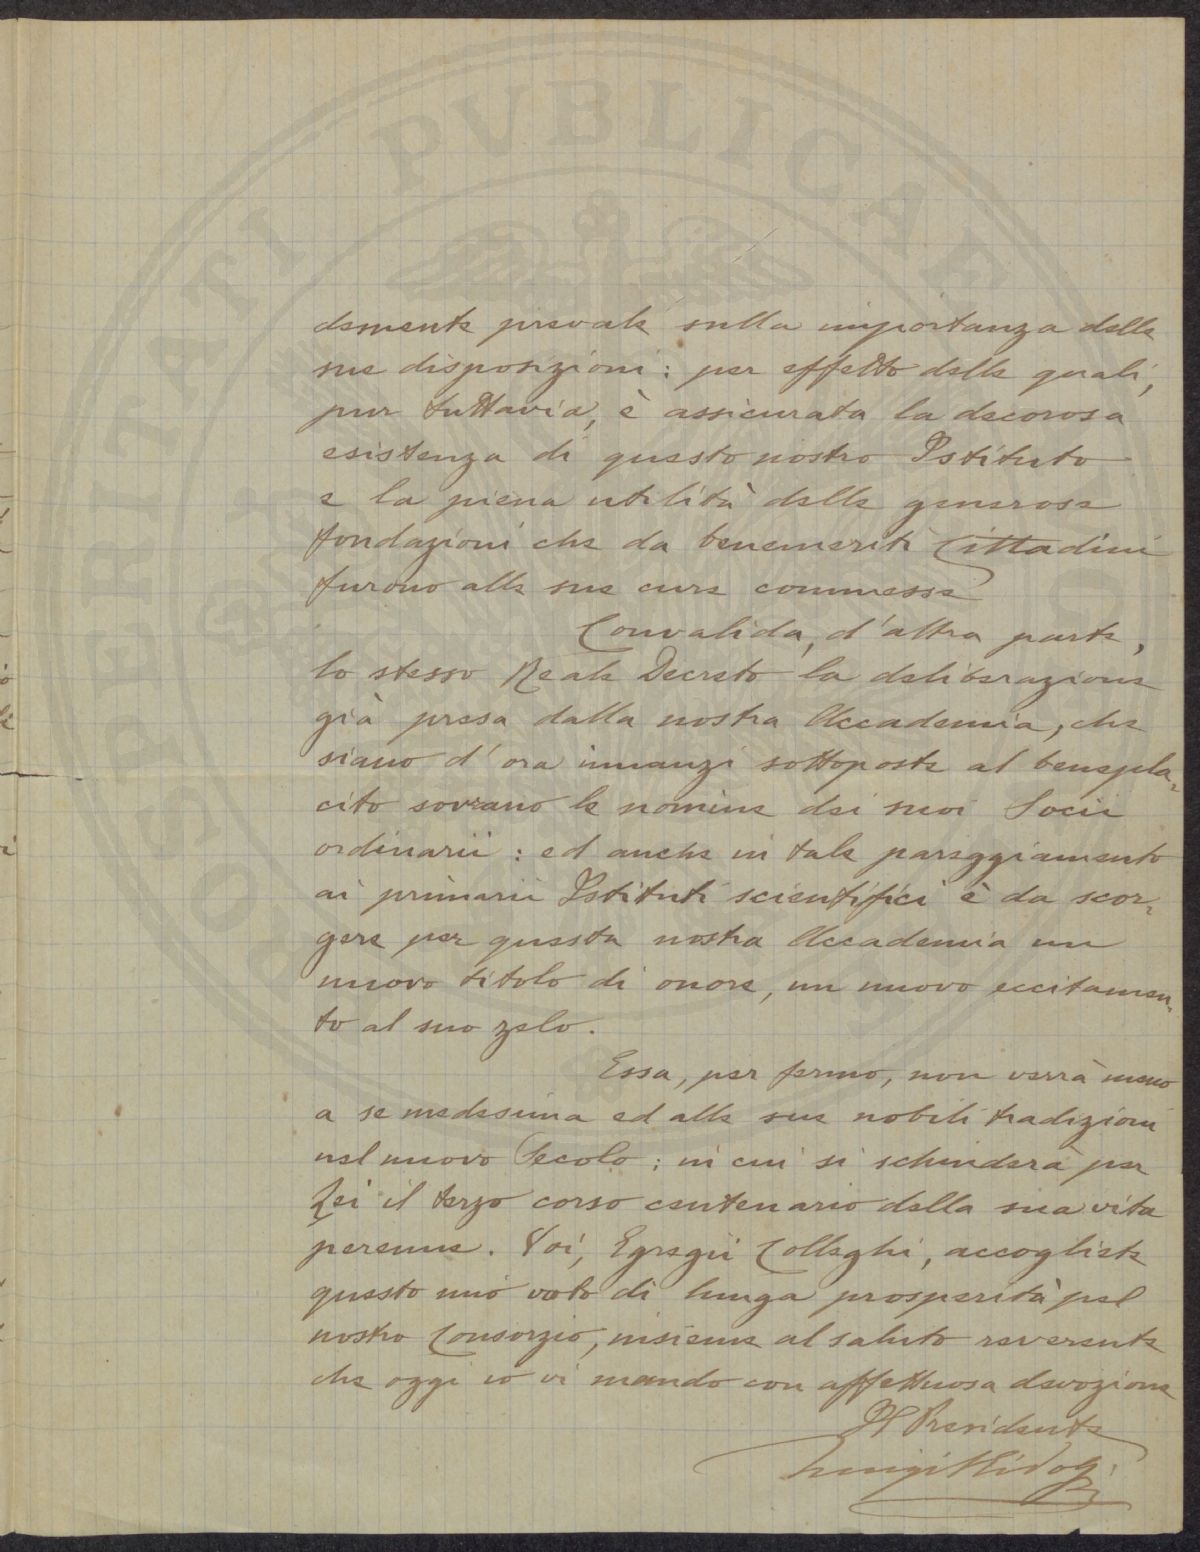 demente prevale sulla importanza delle
sue disposizioni: per effetto delle quali,
pur tuttavia, è assicurata la decorosa
esistenza di questo nostro Istituto
e la piena utilità delle generose
fondazioni che da benemeriti Cittadini
furono alle sue cure commesse
Convalida, d'altra parte,
lo stesso Reale Decreto la deliberazione
già presa dalla nostra Accademia, che
siano d'ora innanzi sottoposte al benepla-
cito sovrano le nomine dei suoi Socii
ordinarii: ed anche in tale pareggiamento
ai primarii Istituti scientifici è da scor-
gere per questa nostra Accademia un
nuovo titolo di onore, un nuovo eccitamen-
to al suo zelo.
Essa, per fermo, non verrà meno
a se medesima ed alle sue nobili tradizioni
nel nuovo Secolo; in cui si schiuderà per
Lei il terzo corso centenario della sua vita
perenne. Voi, Egregii Colleghi, accogliete
questo mio voto di lunga prosperità pel
nostro Consorzio, insieme al saluto reverente
che oggi io vi mando con affettuosa devozione
Il Presidente
Luigi